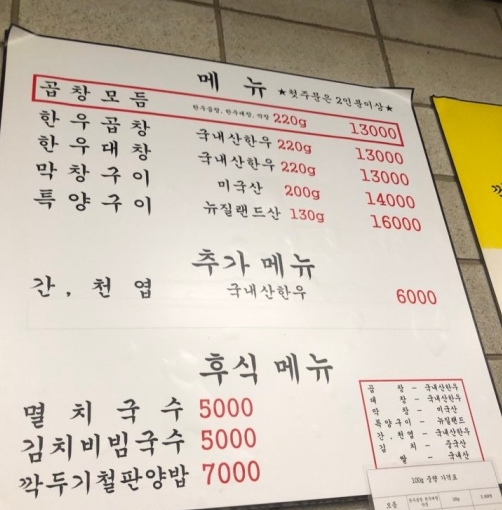 메 뉴 ★첫주문은 2인분이상★
곱창모듬 한우곱창, 한우대창, 막창 220g 13000
한우곱창 국내산한우 220g 13000
한우대창 국내산한우 220g 13000
막창구이 미국산 200g 14000
특양구이 뉴질랜드산 130g 16000
추가 메뉴
간, 천엽 국내산한우 6000
후식 메뉴
멸치국수 5000
김치비빔국수 5000
깍두기철판양밥 7000
곱 창 - 국내산한우
대 창 - 국내산한우
막 창 - 미국산
특양구이 - 뉴질랜드
간, 천엽 - 국내산한우
김 치 - 중국산
쌀 - 국내산
100g 중량 가격표
모듬